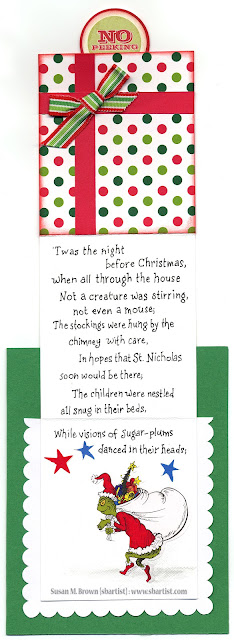 NO
PEEKING
'Twas the night
before Christmas,
when all through the house
Not a creature was stirring,
not even a mouse;
The stockings were hung by the
chimney with care,
In hopes that St. Nicholas
soon would be there;
The children were nestled
all snug in their beds,
While visions of sugar-plums
danced in their heads;
Susan M. Brown {sbartist} : www.sbartist.com